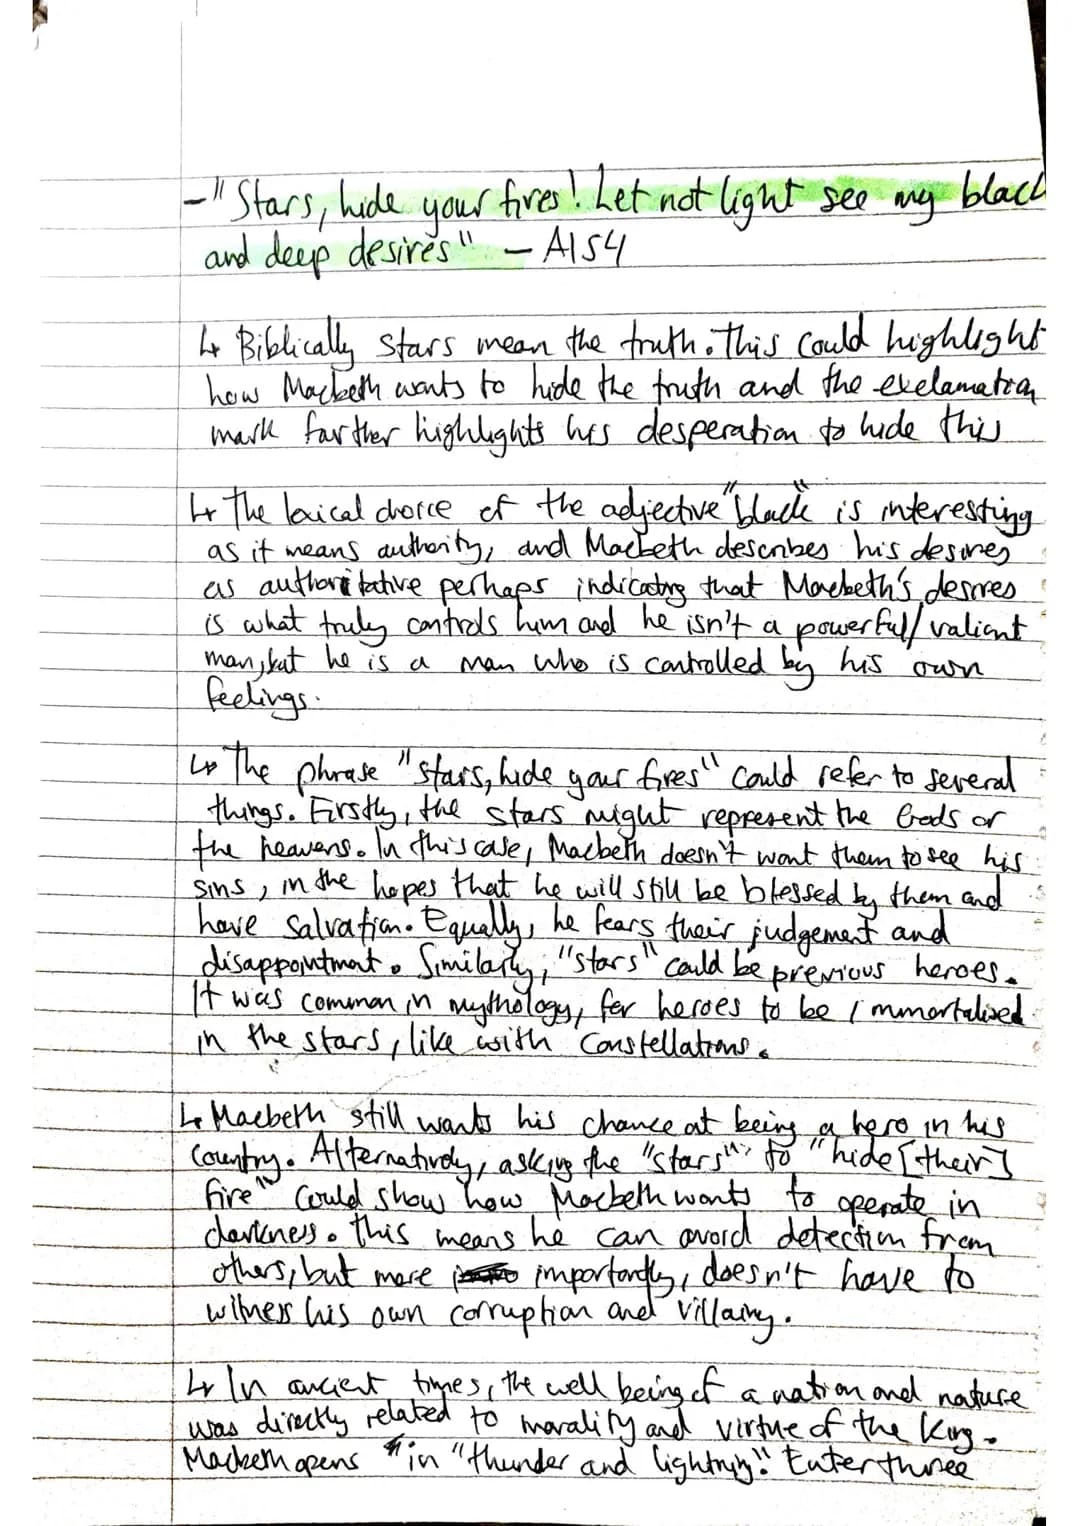 - "Stars, hide your fires! Let not light see my black
and deep desires" - A1S4
↳ Biblically stars mean the truth. This could highlight
how Macbeth wants to hide the truth and the exclamation
mark further highlights his desperation to hide this
↳ The lexical choice of the adjective "black" is interesting
as it means authority, and Macbeth describes his desires
as authoritative perhaps indicating that Macbeth's desires
is what truly controls him and he isn't a powerful/valiant
man, but he is a man who is controlled by his own
feelings.
↳ The phrase "stars, hide your fires" could refer to several
things. Firstly, the stars might represent the Gods or
the heavens. In this case, Macbeth doesn't want them to see his
sins, in the hopes that he will still be blessed by them and
have salvation. Equally, he fears their judgement and
disappointment. Similarly, "stars" could be previous heroes.
It was common in mythology, for heroes to be immortalised
in the stars, like with Constellations.
↳ Macbeth still wants his chance at being a hero in his
Country. Alternatively, asking the "stars" to "hide [their]
fire" could show how Macbeth wants to operate in
darkness. this means he can avoid detection from
others, but more importantly, doesn't have to
witness his own corruption and villainy.
↳ In ancient times, the well being of a nation and nature
was directly related to morality and virtue of the King.
Macbeth opens in "thunder and lightning." Enter three